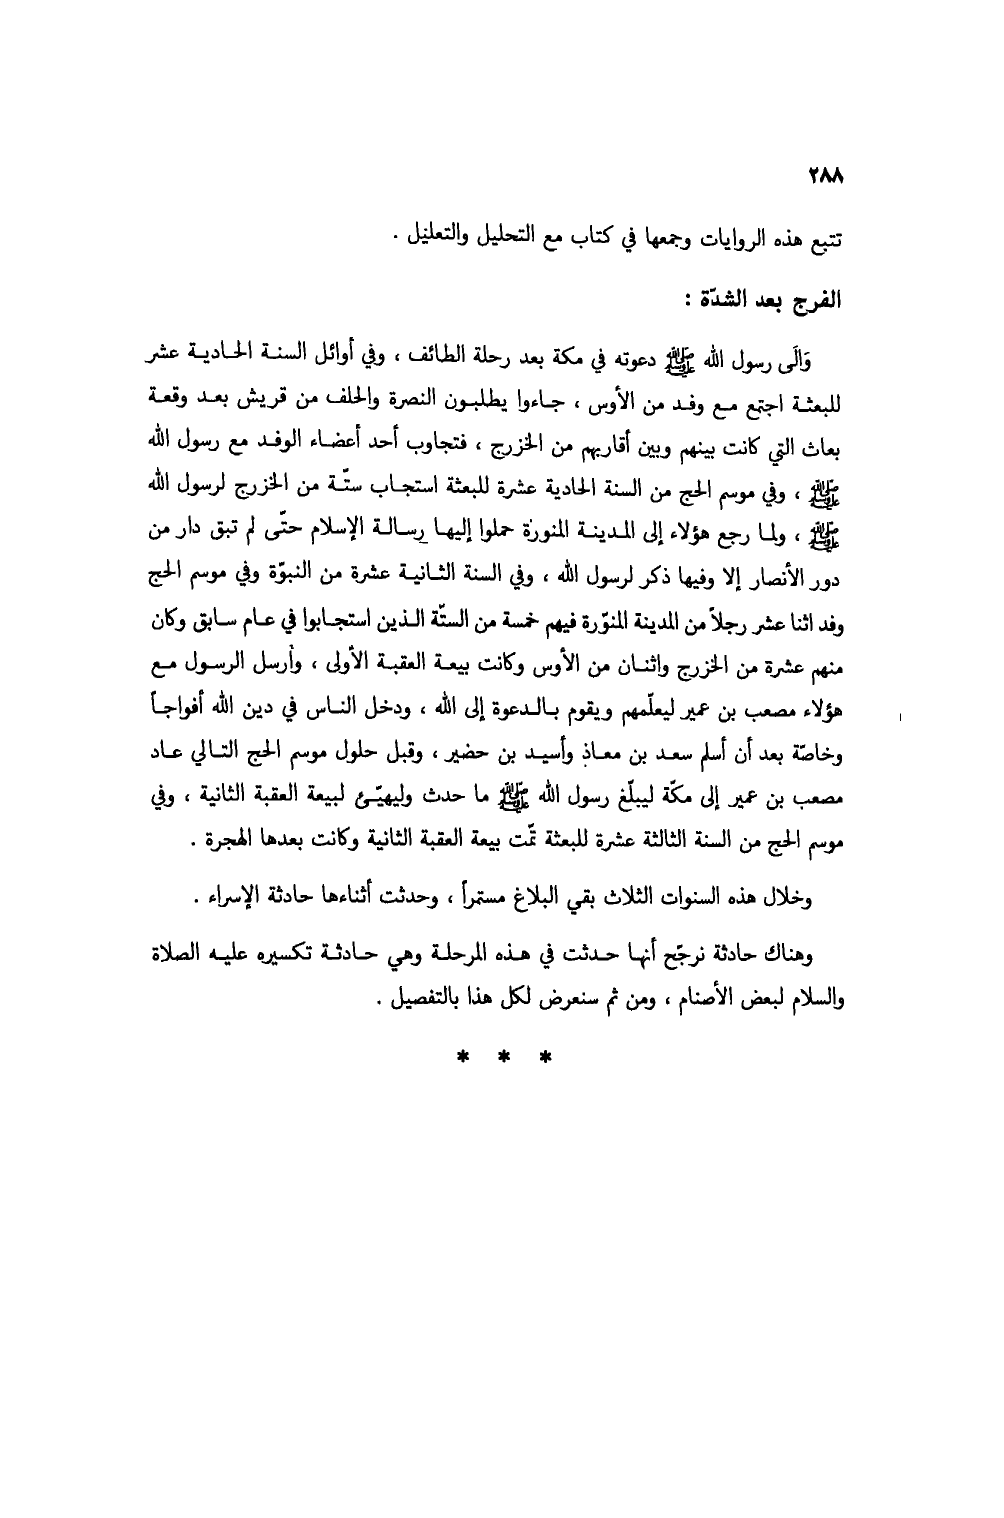 ٢٨٨
تتبع هذه الروايات وجمعها في كتاب مع التحليل والتعليل .
الفرج بعد الشدّة :
وَالَى رسول الله ﷺ دعوته في مكة بعد رحلة الطائف ، وفي أوائل السنة الحادية عشر
للبعثة اجتمع مع وفد من الأوس ، جاءوا يطلبون النصرة والحلف من قريش بعد وقعة
بعاث التي كانت بينهم وبين أقاربهم من الخزرج ، فتجاوب أحد أعضاء الوفد مع رسول الله
ﷺ ، وفي موسم الحج من السنة الحادية عشرة للبعثة استجاب ستّة من الخزرج لرسول الله
ﷺ ، ولما رجع هؤلاء إلى المدينة المنورة حملوا إليها رسالة الإسلام حتّى لم تبق دار من
دور الأنصار إلا وفيها ذكر لرسول الله ، وفي السنة الثانية عشرة من النبوّة وفي موسم الحج
وفد اثنا عشر رجلاً من المدينة المنوّرة فيهم خمسة من الستّة الذين استجابوا في عام سابق وكان
منهم عشرة من الخزرج واثنان من الأوس وكانت بيعة العقبة الأولى ، وأرسل الرسول مع
هؤلاء مصعب بن عمير ليعلّمهم ويقوم بالدعوة إلى الله ، ودخل الناس في دين الله أفواجاً
وخاصّة بعد أن أسلم سعد بن معاذ وأسيد بن حضير ، وقبل حلول موسم الحج التالي عاد
مصعب بن عمير إلى مكّة ليبلّغ رسول الله ﷺ ما حدث وليهيّئ لبيعة العقبة الثانية ، وفي
موسم الحج من السنة الثالثة عشرة للبعثة تمّت بيعة العقبة الثانية وكانت بعدها الهجرة .
وخلال هذه السنوات الثلاث بقي البلاغ مستمراً ، وحدثت أثناءها حادثة الإسراء .
وهناك حادثة نرجّح أنها حدثت في هذه المرحلة وهي حادثة تكسيره عليه الصلاة
والسلام لبعض الأصنام ، ومن ثم سنعرض لكل هذا بالتفصيل .
* * *